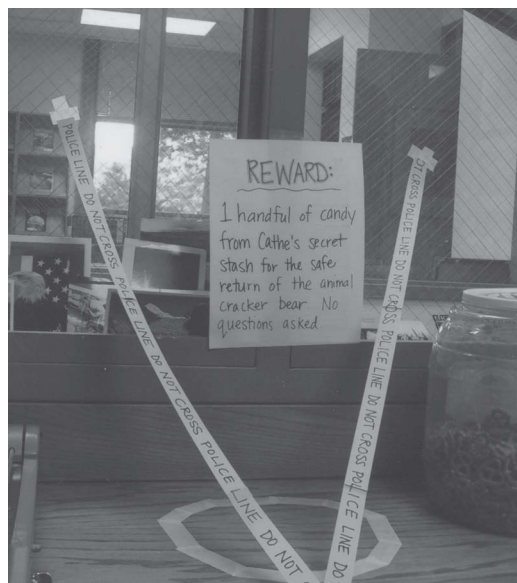 REWARD:
1 handful of candy
from Cathe's secret
stash for the safe
return of the animal
cracker bear No
questions asked
POLICE LINE DO NOT CROSS POLICE LINE DO NOT CROSS POLICE LINE DO NOT
CROSS POLICE LINE DO NOT CROSS POLICE LINE DO NOT CROSS POLICE LINE DO